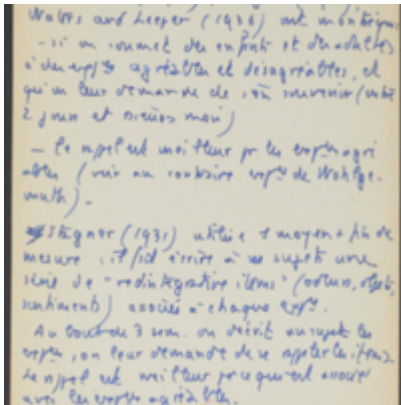 Waters and Leeper (1936) ont montré que
- si on soumet des enfants et des adultes
à des expces agréables et désagréables, et
qu'on leur demande de s'en souvenir (entre
2 jours et mois)
- le rappel est meilleur pr les expces agré
ables (voir au contraire expces de Wohlge-
muth).
Stagner (1931) utilise 1 moyen + fin de
mesure : il fait écrire à ses sujets une
série de "redintegrative items" (odeurs, objets,
sentiments) associés à chaque expce.
Au bout de 3 sem. on décrit aux sujets les
expces, on leur demande de se rappeler les items.
Le rappel est meilleur pr ce qui est associé
avec les expces agréables.